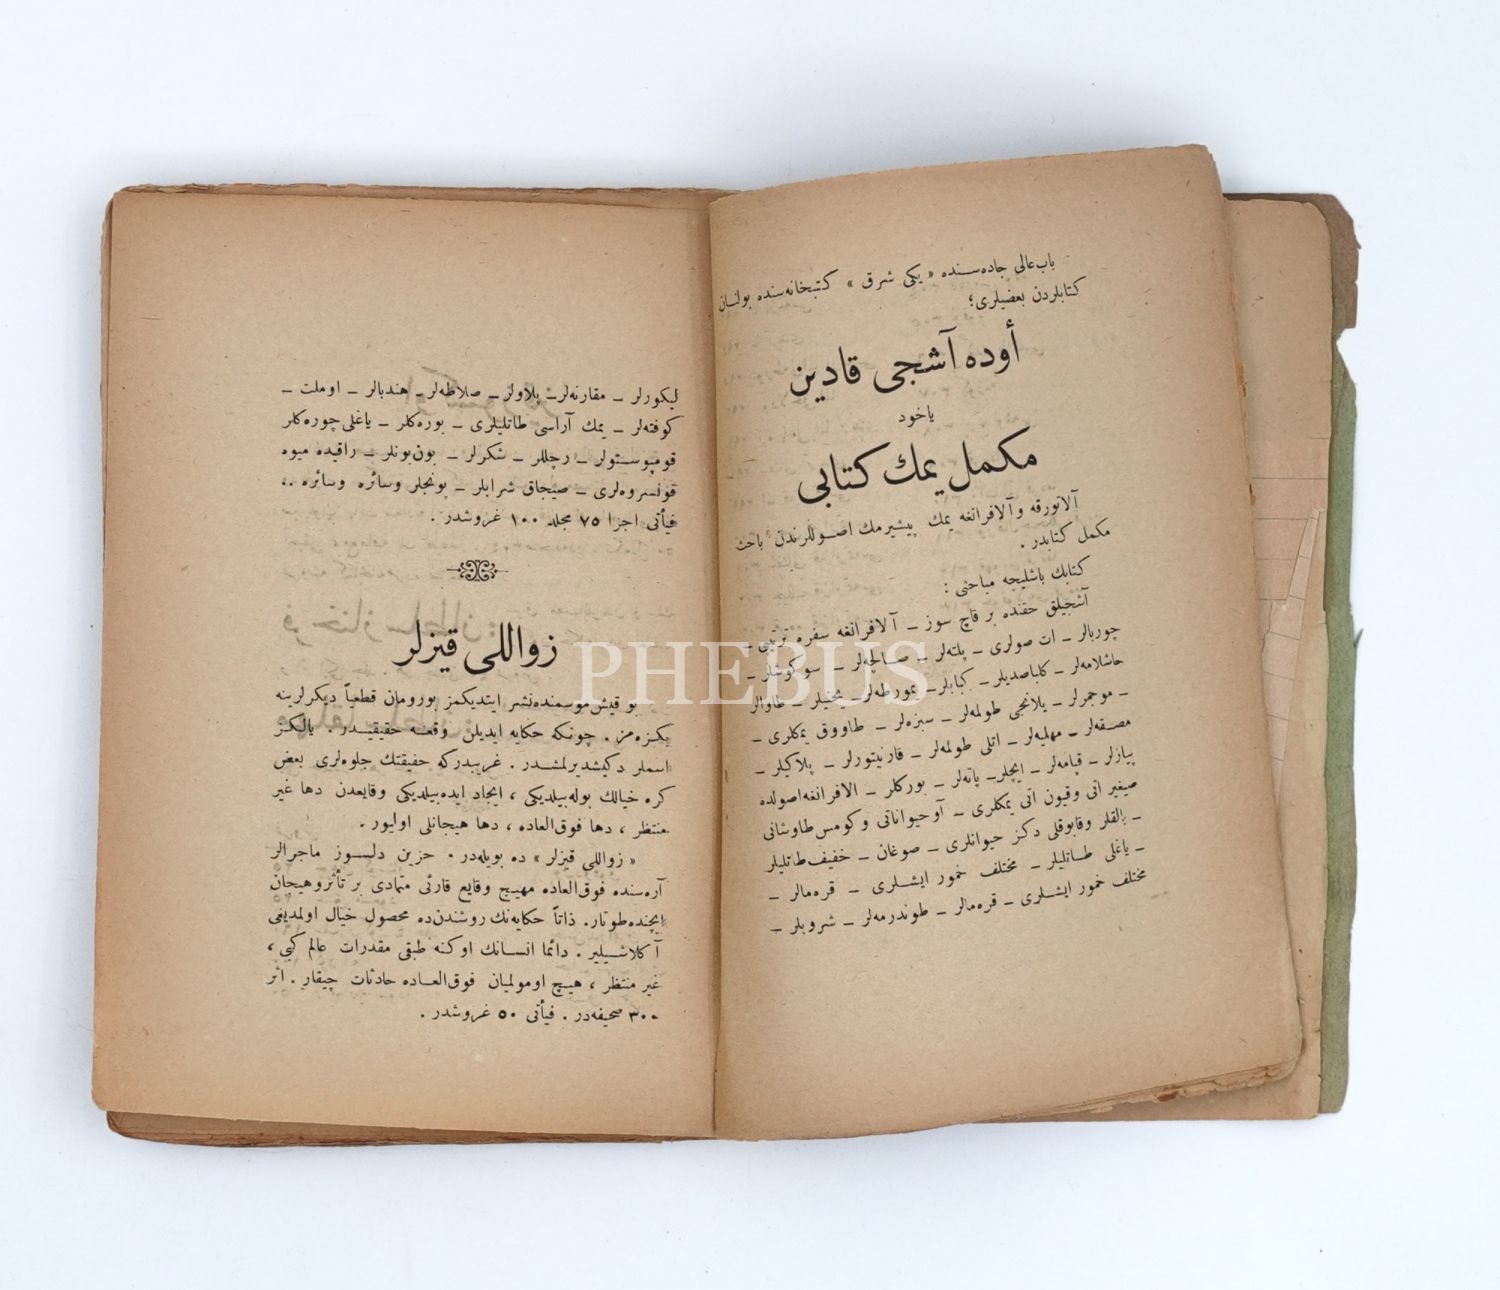 باب‌عالی جاده‌سنده « یکی شرق » کتبخانه‌سنده بولنان
کتابلردن بعضیلری؛
أوده آشجی قادین
یاخود
مکمل یمك کتابی
آلاتورقه و آلافرانغه یمك پیشیرمك اصوللرندن باحث
مکمل کتابدر .
کتابك باشلیجه مباحثی :
آشجیلق حقنده بر قاچ سوز ـ آلافرانغه سفره ترتیبی ـ
چوربالر ـ ات صولری ـ پلته‌لر ـ صالچه‌لر ـ سوکوشلر ـ
حاشلامه‌لر ـ کلباصدیلر ـ کبابلر ـ یمورطه‌لر ـ یخنیلر ـ طاوالر
ـ موجمرلر ـ یلانجی طولمه‌لر ـ سبزه‌لر ـ طاووق یمکلری ـ
مصقعه‌لر ـ مهلبیه‌لر ـ اتلی طولمه‌لر ـ قارنیتورلر ـ پلاکیلر ـ
پیازلر ـ قپامه‌لر ـ ایچلر ـ پاته‌لر ـ بورکلر ـ الافرانغه اصولده
صغیر اتی وقیون اتی یمکلری ـ آو حیواناتی و کومس طاوشانی
ـ بالقلر وقابوقلی دکز حیوانلری ـ صوغان ـ خفیف طاتلیلر
ـ یاغلی طاتلیلر ـ مختلف خمور ایشلری ـ قره‌مالر ـ
مختلف خمور ایشلری ـ قره‌مالر ـ طوندرمه‌لر ـ شروبلر ـ
لیکورلر ـ مقارنه‌لر ـ پلاولر ـ صلاطه‌لر ـ هندبالر ـ اوملت ـ
کوفته‌لر ـ یمك آراسی طاتلیلری ـ بوره‌کلر ـ یاغلی چوره‌کلر
قومپوستولر ـ رچللر ـ شکرلر ـ بون‌بونلر ـ راقیده میوه
قونسروه‌لری ـ صیجاق شرابلر ـ پونجلر وسائره وسائره ..
فیأتی اجزا ۷۵ مجلد ۱۰۰ غروشدر .
زواللی قیزلر
بو قیش موسمنده نشر ایتدیکمز بورومان قطعیاً دیکرلرینه
بکزه‌مز . چونکه حکایه ایدیلن وقعه حقیقیدر . یالکز
اسملر دکیشدیرلمشدر . غریبدرکه حقیقتك جلوه‌لری بعض
کره خیالك بوله‌بیلدیکی ، ایجاد ایده‌بیلدیکی وقایعدن دها غیر
منتظر ، دها فوق‌العاده ، دها هیجانلی اولیور .
« زواللی قیزلر » ده بویله‌در . حزین دلسوز ماجرالر
آره‌سنده فوق‌العاده مهیج وقایع قارئی متمادی بر تأثر وهیجان
ایچنده طوتار. ذاتاً حکایه‌نك روشندن‌ده محصول خیال اولمدیغی
آکلاشیلیر . دائما انسانك اوکنه طبقی مقدرات عالم کبی ،
غیر منتظر ، هیچ اومولمیان فوق‌العاده حادثات چیقار . اثر
۳۰۰ صحیفه‌در . فیأتی ۵۰ غروشدر .
PHEBUS